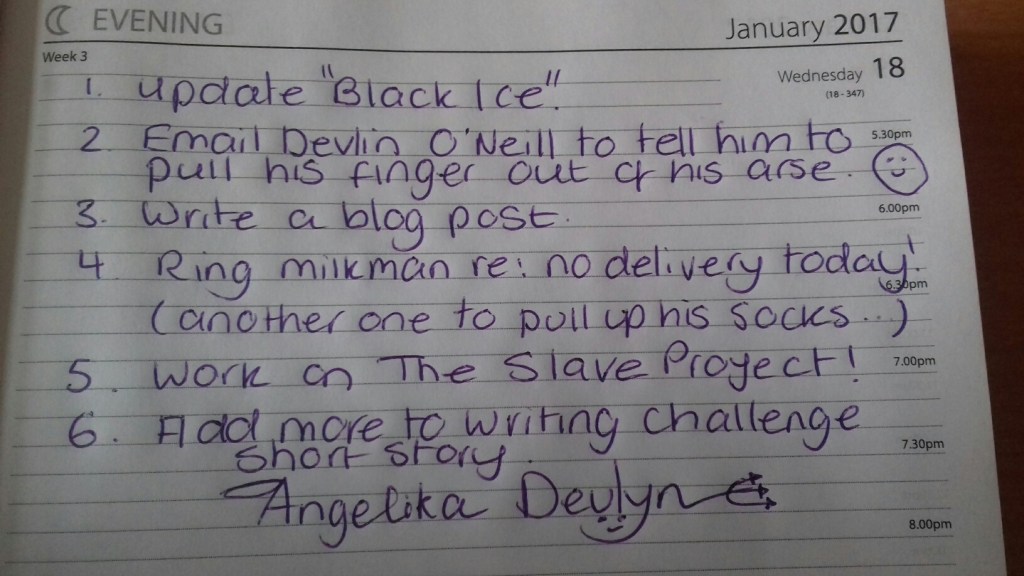 EVENING
January 2017
Week 3
Wednesday 18
(18 - 347)
1. Update "Black Ice".
2 Email Devlin O'Neill to tell him to
5.30pm
pull his finger out of his arse.
3. Write a blog post.
6.00pm
4 Ring milkman re: no delivery today!
6.30pm
(another one to pull up his socks...)
5. Work on The Slave Proyect!
7.00pm
6. Add more to writing challenge
7.30pm
short story.
Angelika Devlyn
8.00pm